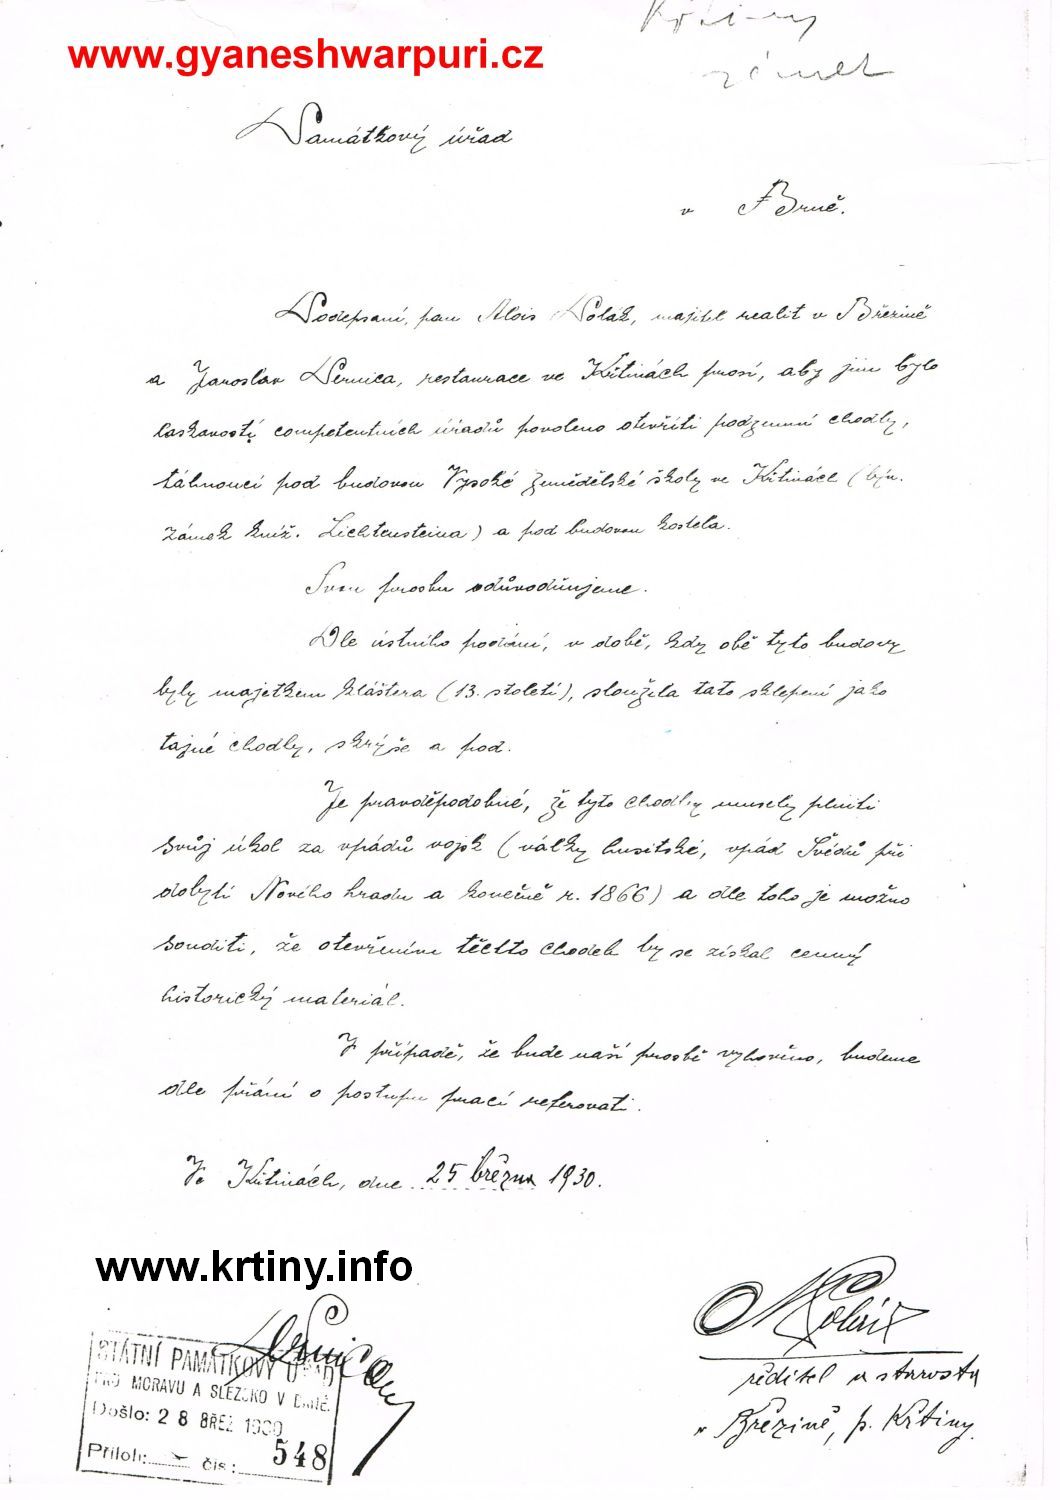 Křtiny
zámek
www.gyaneshwarpuri.cz
Památkový úřad
v Brně.
Podepsaní, pan Alois Polák, majitel realit v Březině
a Jaroslav Pernica, restaurace ve Křtinách prosí, aby jim bylo
laskavostí competentních úřadů povoleno otevříti podzemní chodby,
táhnoucí pod budovou Vysoké zemědělské školy ve Křtinách (býv.
zámek kníž. Lichtensteina) a pod budovou kostela.
Svou prosbu odůvodňujeme.
Dle ústního podání, v době, kdy obě tyto budovy
byly majetkem kláštera (13. století), sloužila tato sklepení jako
tajné chodby, skrýše a pod.
Je pravděpodobné, že tyto chodby musely plniti
svůj úkol za vpádů vojsk (války husitské, vpád Švédů při
dobytí Nového hradu a konečně r. 1866) a dle toho je možno
souditi, že otevřením těchto chodeb by se získal cenný
historický materiál.
V případě, že bude naší prosbě vyhověno, budeme
dle přání o postupu prací referovati.
Ve Křtinách, dne 25 března 1930.
www.krtiny.info
Pernica
Polák
ředitel a starosta
v Březině, p. Křtiny.
STÁTNÍ PAMÁTKOVÝ ÚŘAD
PRO MORAVU A SLEZSKO V BRNĚ.
Došlo: 28 BŘEZ 1930
Příloh: čís: 548